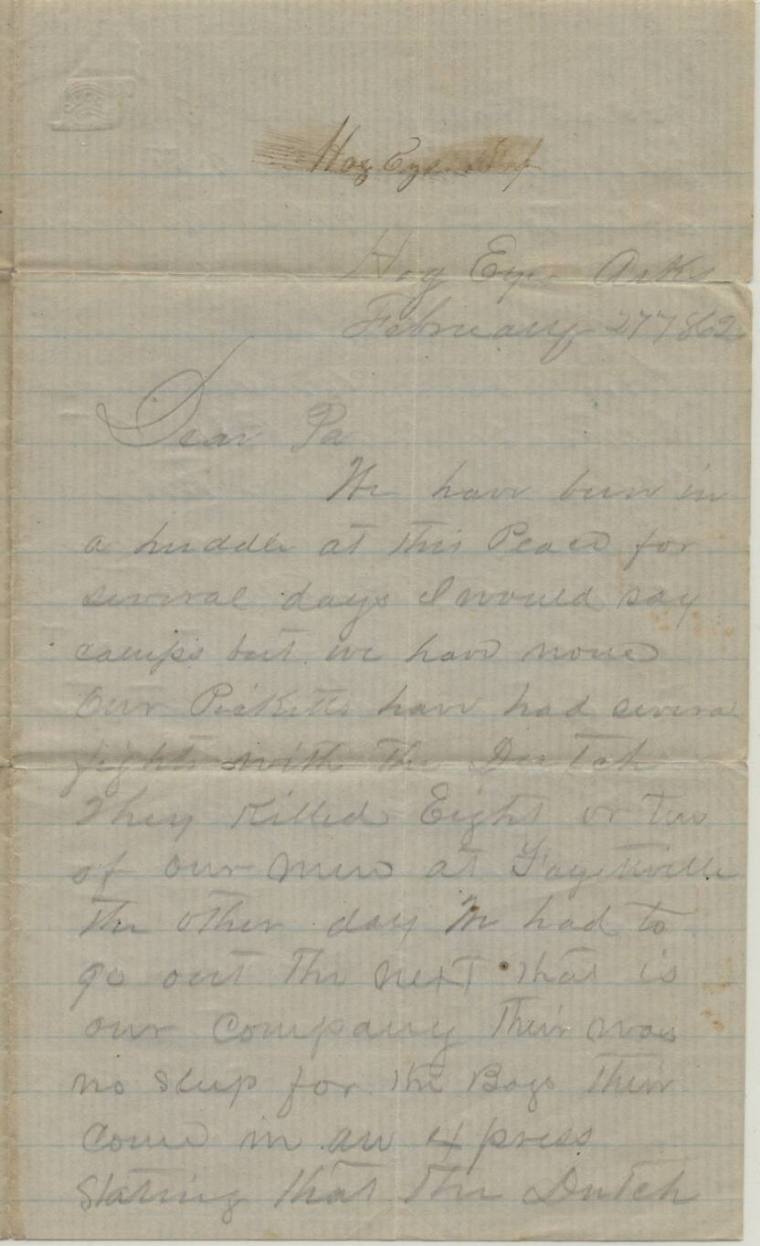 Hog Eye
Hog Eye Arks
February 27 / 62
Dear Pa
We have been in
a huddle at this Peace for
several days I would say
camps but we have none
Our Picketts have had severa
fights with the Dutch
They Killed Eight or ten
of our men at Fayettville
the other day We had to
go out the next that is
our Company their was
no sleep for the Boys their
come in an express
stating that the Dutch